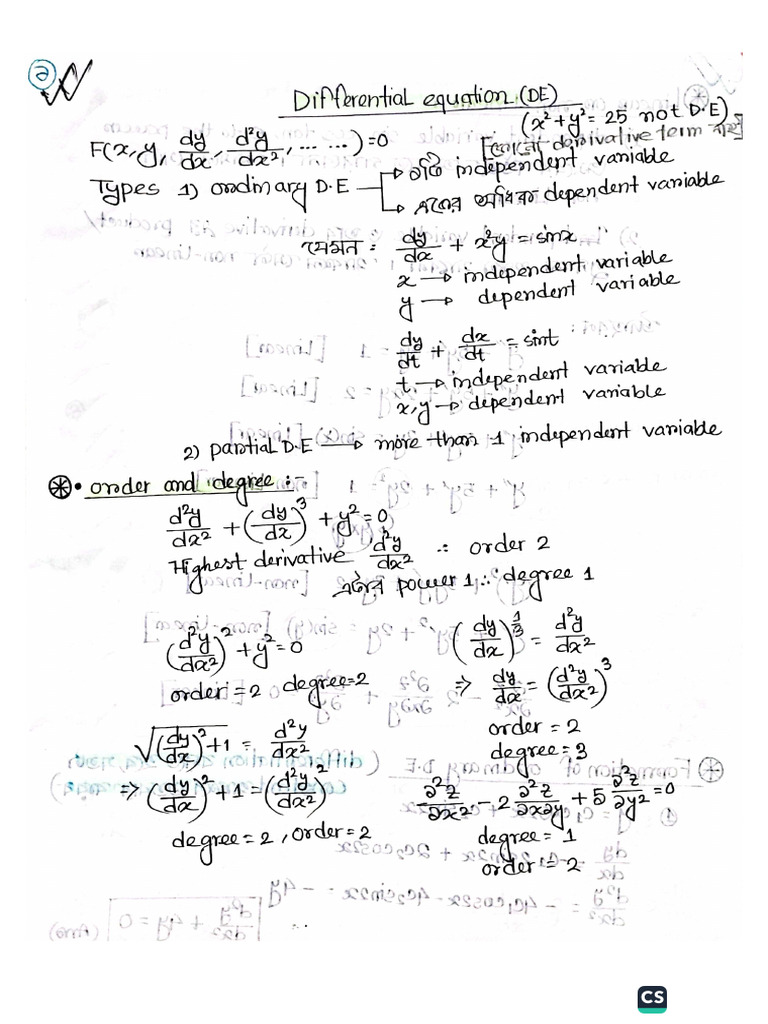 ২
Differential equation (DE)
(x² + y² = 25 not D.E)
[কোনো derivative term নাই]
F(x, y, dy/dx, d²y/dx², ... ...) = 0
Types 1) ordinary D.E → ১টি independent variable
→ একের অধিক dependent variable
যেমন : dy/dx + x²y = sinx
x → independent variable
y → dependent variable
dy/dt + dx/dt = sint
t → independent variable
x, y → dependent variable
2) partial D.E → more than 1 independent variable
• order and degree :-
d²y/dx² + (dy/dx)³ + y² = 0
Highest derivative d²y/dx² ∴ order 2
এটার power 1 ∴ degree 1
(d²y/dx²)² + y² = 0
order = 2 degree = 2
(dy/dx)^(1/3) = d²y/dx²
⇒ dy/dx = (d²y/dx²)³
order = 2
degree = 3
√((dy/dx)² + 1) = d²y/dx²
⇒ (dy/dx)² + 1 = (d²y/dx²)²
degree = 2, order = 2
∂²z/∂x² - 2 ∂²z/∂x∂y + 5 ∂²z/∂y² = 0
degree = 1
order = 2
CS